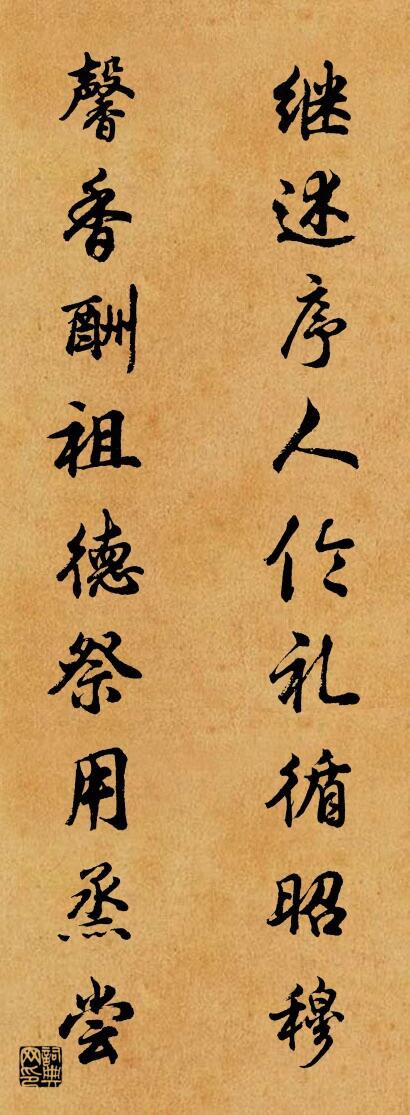 继述序人伦礼循昭穆
馨香酬祖德祭用烝尝
词典网印